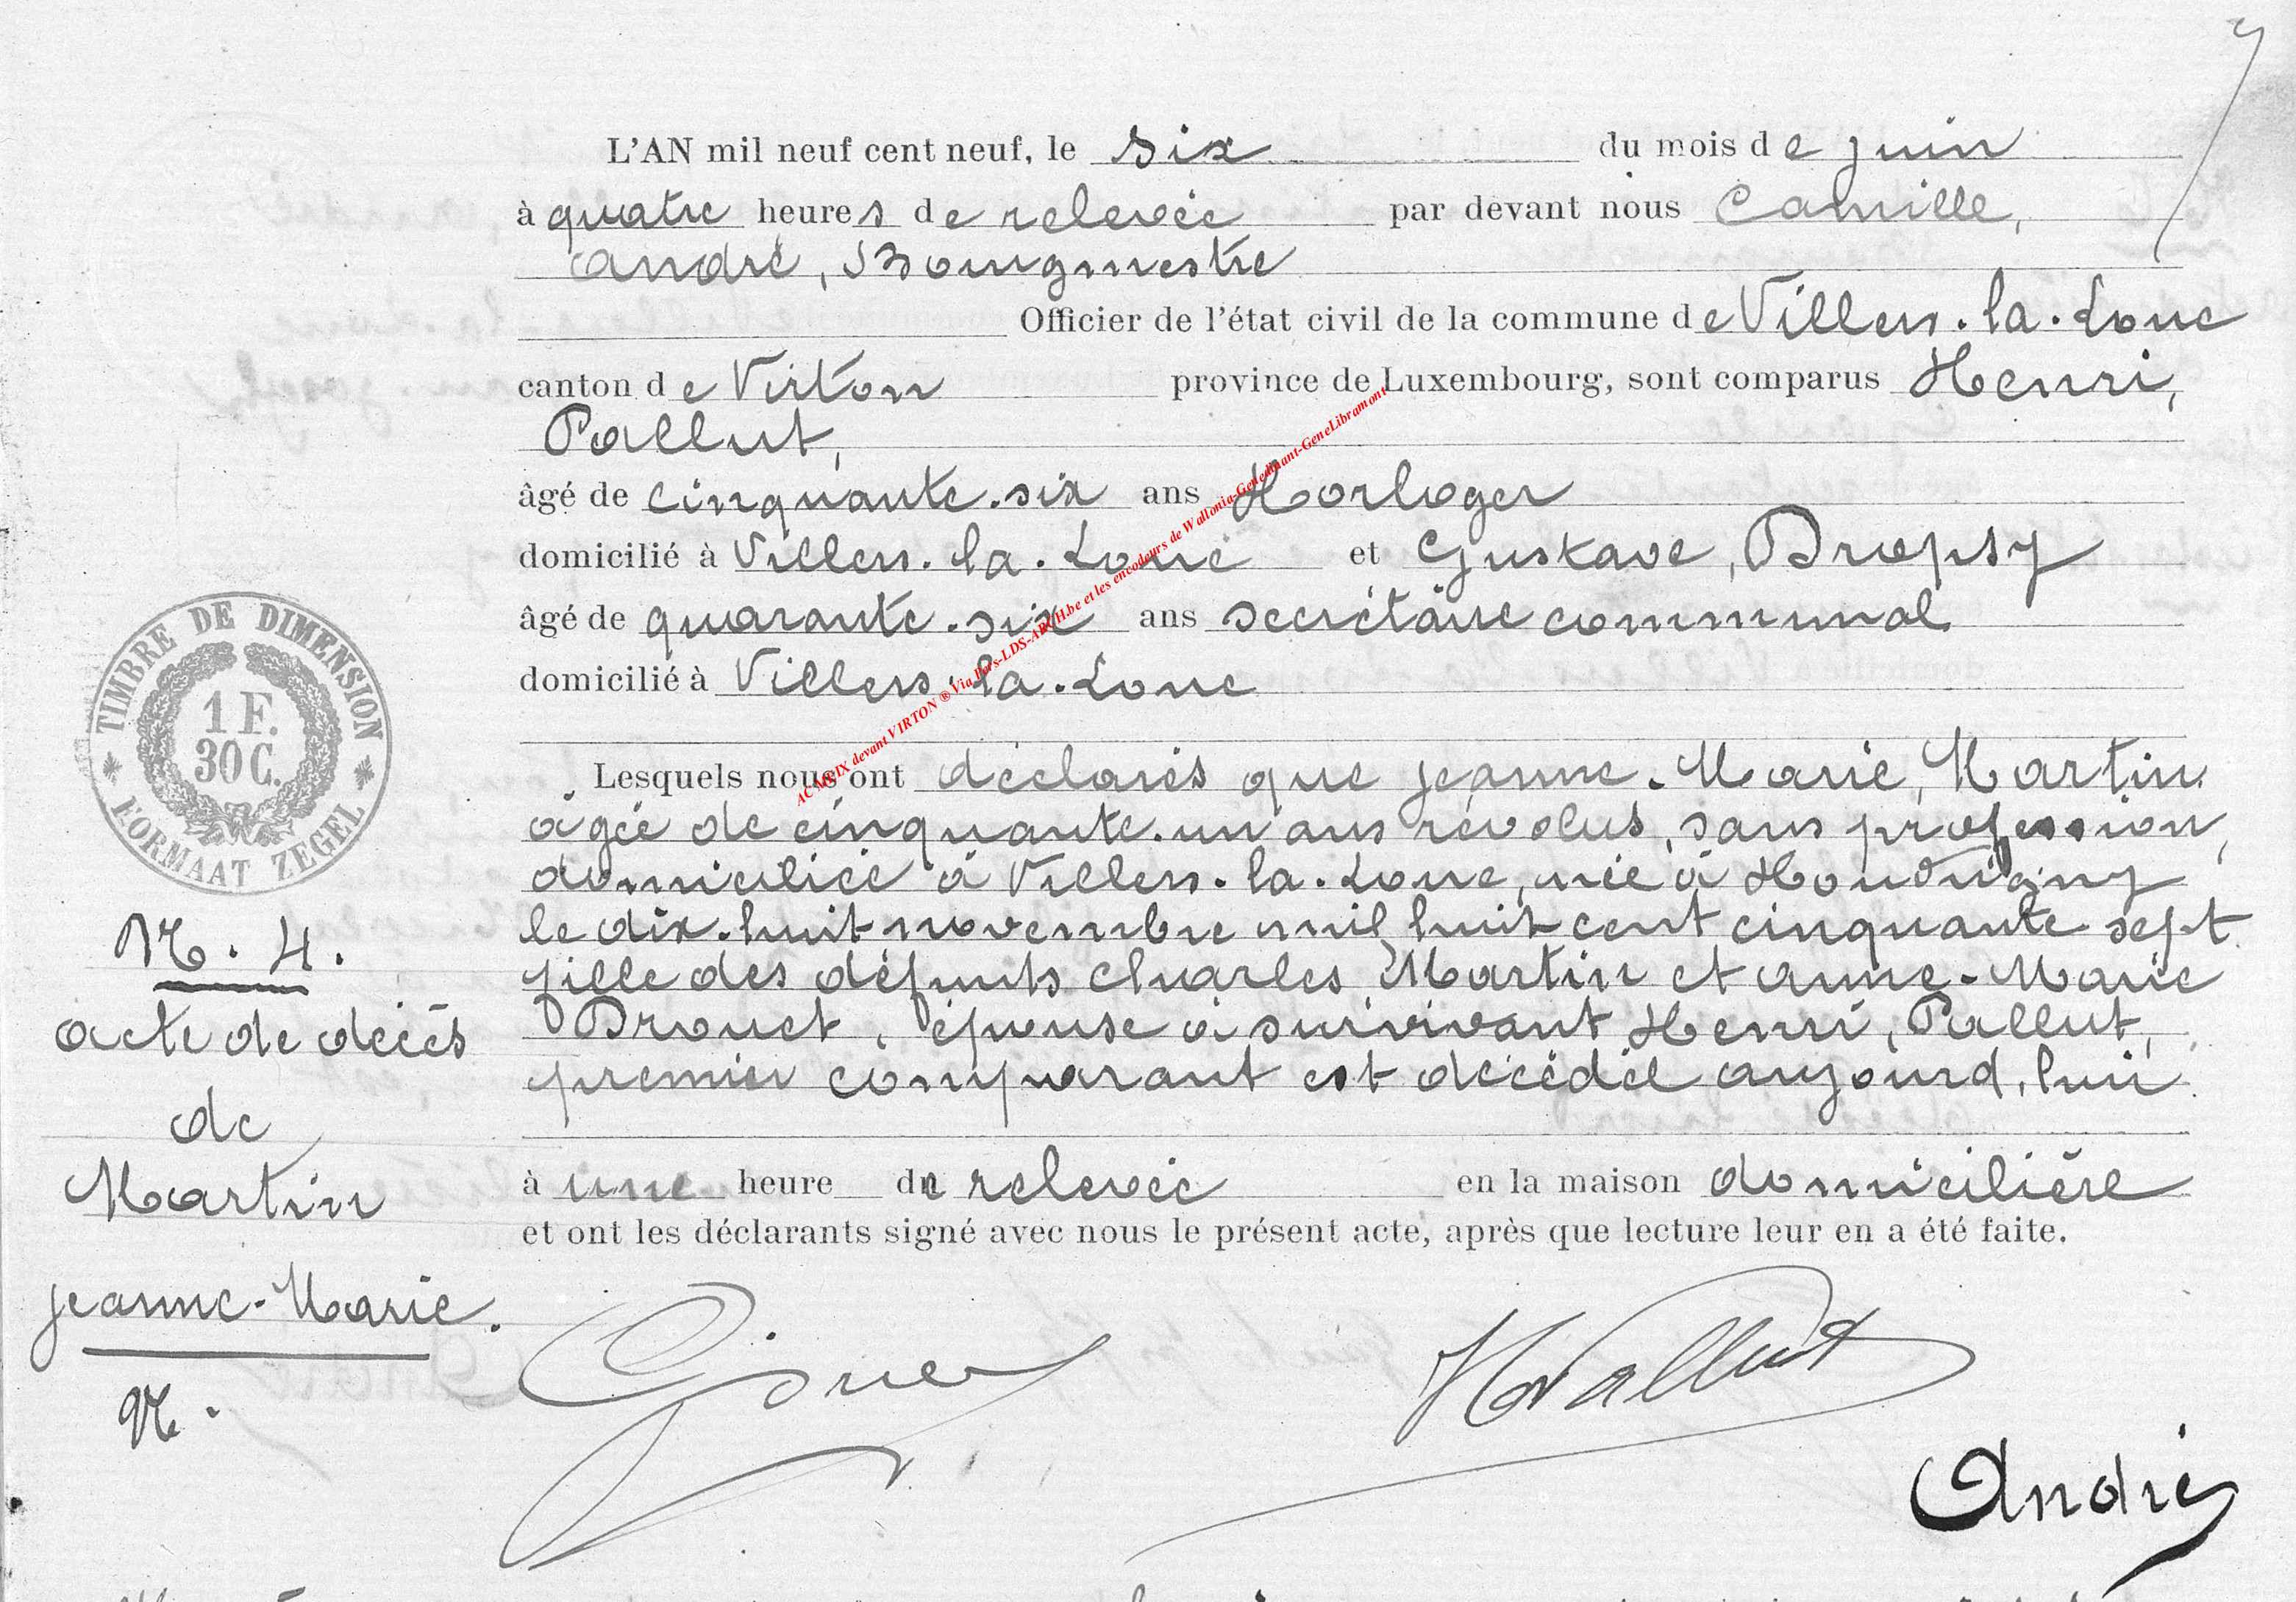 L'AN mil neuf cent neuf, le six du mois de juin
à quatre heures de relevée par devant nous Camille,
André, Bourgmestre
Officier de l'état civil de la commune de Villers-la-Loue
canton de Virton province de Luxembourg, sont comparus Henri,
Pallut,
âgé de cinquante-six ans Horloger
domicilié à Villers-la-Loue et Gustave, Dropsy
âgé de quarante-six ans secrétaire communal
domicilié à Villers-la-Loue
Lesquels nous ont déclarés que Jeanne-Marie, Martin
âgée de cinquante-un ans révolus, sans profession,
domiciliée à Villers-la-Loue, née à Houdrigny
le dix-huit novembre mil huit cent cinquante sept
fille des défunts Charles, Martin et Anne-Marie
Drouet, épouse à survivant Henri, Pallut,
premier comparant est décédée aujourd'hui
à une heure de relevée en la maison domicilière
et ont les déclarants signé avec nous le présent acte, après que lecture leur en a été faite.
TIMBRE DE DIMENSION
1 F.
30 C.
FORMAAT ZEGEL
N. 4.
acte de décès
de
Martin
Jeanne-Marie.
N.
H Pallut
André
AC MLIX devant VIRTON ® Via Pars-LDS-ARCH.be et les encodeurs de Wallonia-Genedinant-GeneLibramont